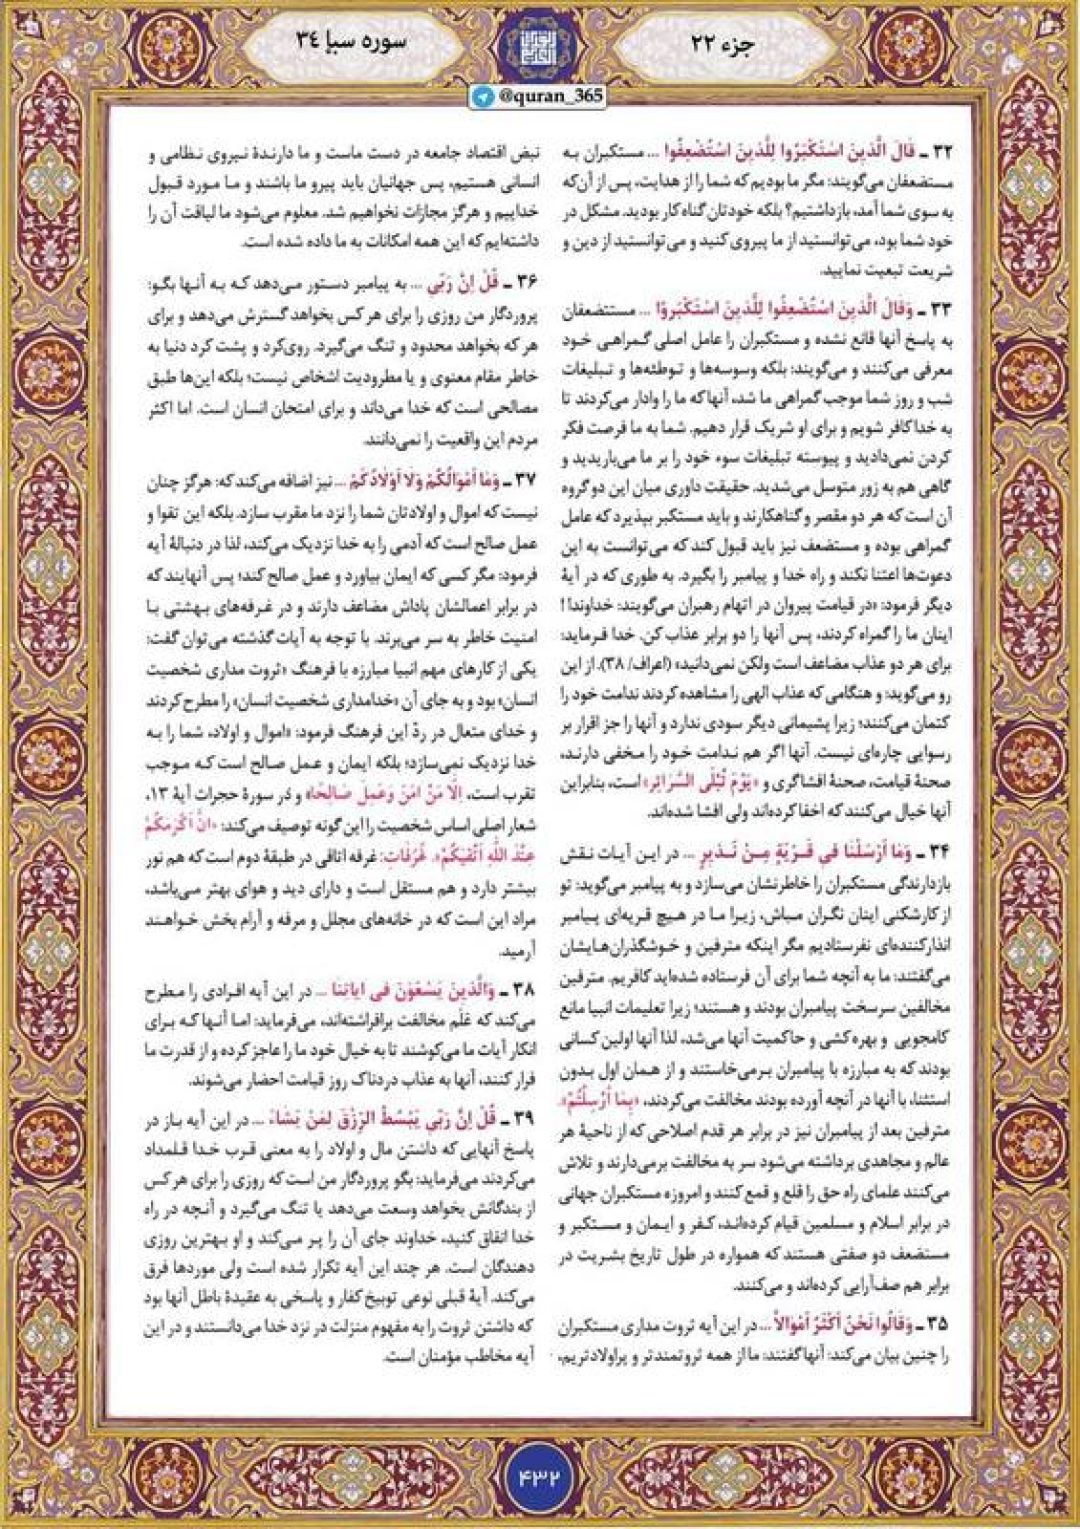 جزء ۲۲
سوره سبإ ۳۴
@quran_365
۳۲ ـ قَالَ الَّذِينَ اسْتَكْبَرُوا لِلَّذِينَ اسْتُضْعِفُوا ... مستکبران به
مستضعفان می‌گویند: مگر ما بودیم که شما را از هدایت، پس از آن‌که
به سوی شما آمد، بازداشتیم؟ بلکه خودتان گناه‌کار بودید. مشکل در
خود شما بود، می‌توانستید از ما پیروی کنید و می‌توانستید از دین و
شریعت تبعیت نمایید.
۳۳ ـ وَقَالَ الَّذِينَ اسْتُضْعِفُوا لِلَّذِينَ اسْتَكْبَرُوا ... مستتضعفان
به پاسخ آنها قانع نشده و مستکبران را عامل اصلی گمراهی خود
معرفی می‌کنند و می‌گویند: بلکه وسوسه‌ها و توطئه‌ها و تبلیغات
شب و روز شما موجب گمراهی ما شد، آنها که ما را وادار می‌کردند تا
به خدا کافر شویم و برای او شریک قرار دهیم. شما به ما فرصت فکر
کردن نمی‌دادید و پیوسته تبلیغات سوء خود را بر ما می‌باریدید و
گاهی هم به زور متوسل می‌شدید. حقیقت داوری میان این دو گروه
آن است که هر دو مقصر و گناهکارند و باید مستکبر بپذیرد که عامل
گمراهی بوده و مستضعف نیز باید قبول کند که می‌توانست به این
دعوت‌ها اعتنا نکند و راه خدا و پیامبر را بگیرد. به طوری که در آیهٔ
دیگر فرمود: «در قیامت پیروان در اتهام رهبران می‌گویند: خداوندا!
اینان ما را گمراه کردند، پس آنها را دو برابر عذاب کن. خدا فرماید:
برای هر دو عذاب مضاعف است ولکن نمی‌دانید» (اعراف/ ۳۸). از این
رو می‌گوید: و هنگامی که عذاب الهی را مشاهده کردند ندامت خود را
کتمان می‌کنند؛ زیرا پشیمانی دیگر سودی ندارد و آنها را جز اقرار بر
رسوایی چاره‌ای نیست. آنها اگر هم ندامت خود را مخفی دارند،
صحنهٔ قیامت، صحنهٔ افشاگری و «يَوْمَ تُبْلَى السَّرَائِرِ» است، بنابراین
آنها خیال می‌کنند که اخفا کرده‌اند ولی افشا شده‌اند.
۳۴ ـ وَمَا أَرْسَلْنَا فِي قَرْيَةٍ مِنْ نَذِيرٍ ... در این آیات نقش
بازدارندگی مستکبران را خاطرنشان می‌سازد و به پیامبر می‌گوید: تو
از کارشکنی اینان نگران مباش، زیرا ما در هیچ قریه‌ای پیامبر
انذارکننده‌ای نفرستادیم مگر اینکه مترفین و خوشگذران‌هایشان
می‌گفتند: ما به آنچه شما برای آن فرستاده شده‌اید کافریم. مترفین
مخالفین سرسخت پیامبران بودند و هستند؛ زیرا تعلیمات انبیا مانع
کامجویی و بهره‌کشی و حاکمیت آنها می‌شد، لذا آنها اولین کسانی
بودند که به مبارزه با پیامبران برمی‌خاستند و از همان اول بدون
استثنا، با آنها در آنچه آورده بودند مخالفت می‌کردند، «بِمَا أُرْسِلْتُمْ».
مترفین بعد از پیامبران نیز در برابر هر قدم اصلاحی که از ناحیهٔ هر
عالم و مجاهدی برداشته می‌شود سر به مخالفت برمی‌دارند و تلاش
می‌کنند علمای راه حق را قلع و قمع کنند و امروزه مستکبران جهانی
در برابر اسلام و مسلمین قیام کرده‌اند، کفر و ایمان و مستکبر و
مستضعف دو صفتی هستند که همواره در طول تاریخ بشریت در
برابر هم صف‌آرایی کرده‌اند و می‌کنند.
۳۵ ـ وَقَالُوا نَحْنُ أَكْثَرُ أَمْوَالًا ... در این آیه ثروت مداری مستکبران
را چنین بیان می‌کند: آنها گفتند: ما از همه ثروتمندتر و پراولادتریم،
نبض اقتصاد جامعه در دست ماست و ما دارندهٔ نیروی نظامی و
انسانی هستیم، پس جهانیان باید پیرو ما باشند و ما مورد قبول
خداییم و هرگز مجازات نخواهیم شد. معلوم می‌شود ما لیاقت آن را
داشته‌ایم که این همه امکانات به ما داده شده است.
۳۶ ـ قُلْ إِنَّ رَبِّي ... به پیامبر دستور می‌دهد که به آنها بگو:
پروردگار من روزی را برای هر کس بخواهد گسترش می‌دهد و برای
هر که بخواهد محدود و تنگ می‌گیرد. روی‌کرد و پشت کرد دنیا به
خاطر مقام معنوی و یا مطرودیت اشخاص نیست؛ بلکه این‌ها طبق
مصالحی است که خدا می‌داند و برای امتحان انسان است. اما اکثر
مردم این واقعیت را نمی‌دانند.
۳۷ ـ وَمَا أَمْوَالُكُمْ وَلَا أَوْلَادُكُمْ ... نیز اضافه می‌کند که: هرگز چنان
نیست که اموال و اولادتان شما را نزد ما مقرب سازد. بلکه این تقوا و
عمل صالح است که آدمی را به خدا نزدیک می‌کند، لذا در دنبالهٔ آیه
فرمود: مگر کسی که ایمان بیاورد و عمل صالح کند؛ پس آنهایند که
در برابر اعمالشان پاداش مضاعف دارند و در غرفه‌های بهشتی با
امنیت خاطر به سر می‌برند. با توجه به آیات گذشته می‌توان گفت:
یکی از کارهای مهم انبیا مبارزه با فرهنگ «ثروت مداری شخصیت
انسان» بود و به جای آن «خدامداری شخصیت انسان» را مطرح کردند
و خدای متعال در ردّ این فرهنگ فرمود: «اموال و اولاد، شما را به
خدا نزدیک نمی‌سازد؛ بلکه ایمان و عمل صالح است که موجب
تقرب است، إِلَّا مَنْ آمَنَ وَعَمِلَ صَالِحًا» و در سورهٔ حجرات آیهٔ ۱۳،
شعار اصلی اساس شخصیت را این‌گونه توصیف می‌کند: «إِنَّ أَكْرَمَكُمْ
عِنْدَ اللَّهِ أَتْقَيكُمْ». غُرُفَات: غرفه اتاقی در طبقهٔ دوم است که هم نور
بیشتر دارد و هم مستقل است و دارای دید و هوای بهتر می‌باشد،
مراد این است که در خانه‌های مجلل و مرفه و آرام بخش خواهند
آرمید.
۳۸ ـ وَالَّذِينَ يَسْعَوْنَ فِي آيَاتِنَا ... در این آیه افرادی را مطرح
می‌کند که عَلَم مخالفت برافراشته‌اند، می‌فرماید: اما آنها که برای
انکار آیات ما می‌کوشند تا به خیال خود ما را عاجز کرده و از قدرت ما
فرار کنند، آنها به عذاب دردناک روز قیامت احضار می‌شوند.
۳۹ ـ قُلْ إِنَّ رَبِّي يَبْسُطُ الرِّزْقَ لِمَنْ يَشَاءُ ... در این آیه باز در
پاسخ آنهایی که داشتن مال و اولاد را به معنی قرب خدا قلمداد
می‌کردند می‌فرماید: بگو پروردگار من است که روزی را برای هر کس
از بندگانش بخواهد وسعت می‌دهد یا تنگ می‌گیرد و آنچه در راه
خدا انفاق کنید، خداوند جای آن را پر می‌کند و او بهترین روزی
دهندگان است. هر چند این آیه تکرار شده است ولی موردها فرق
می‌کند. آیهٔ قبلی نوعی توبیخ کفار و پاسخی به عقیدهٔ باطل آنها بود
که داشتن ثروت را به مفهوم منزلت در نزد خدا می‌دانستند و در این
آیه مخاطب مؤمنان است.
۴۳۲